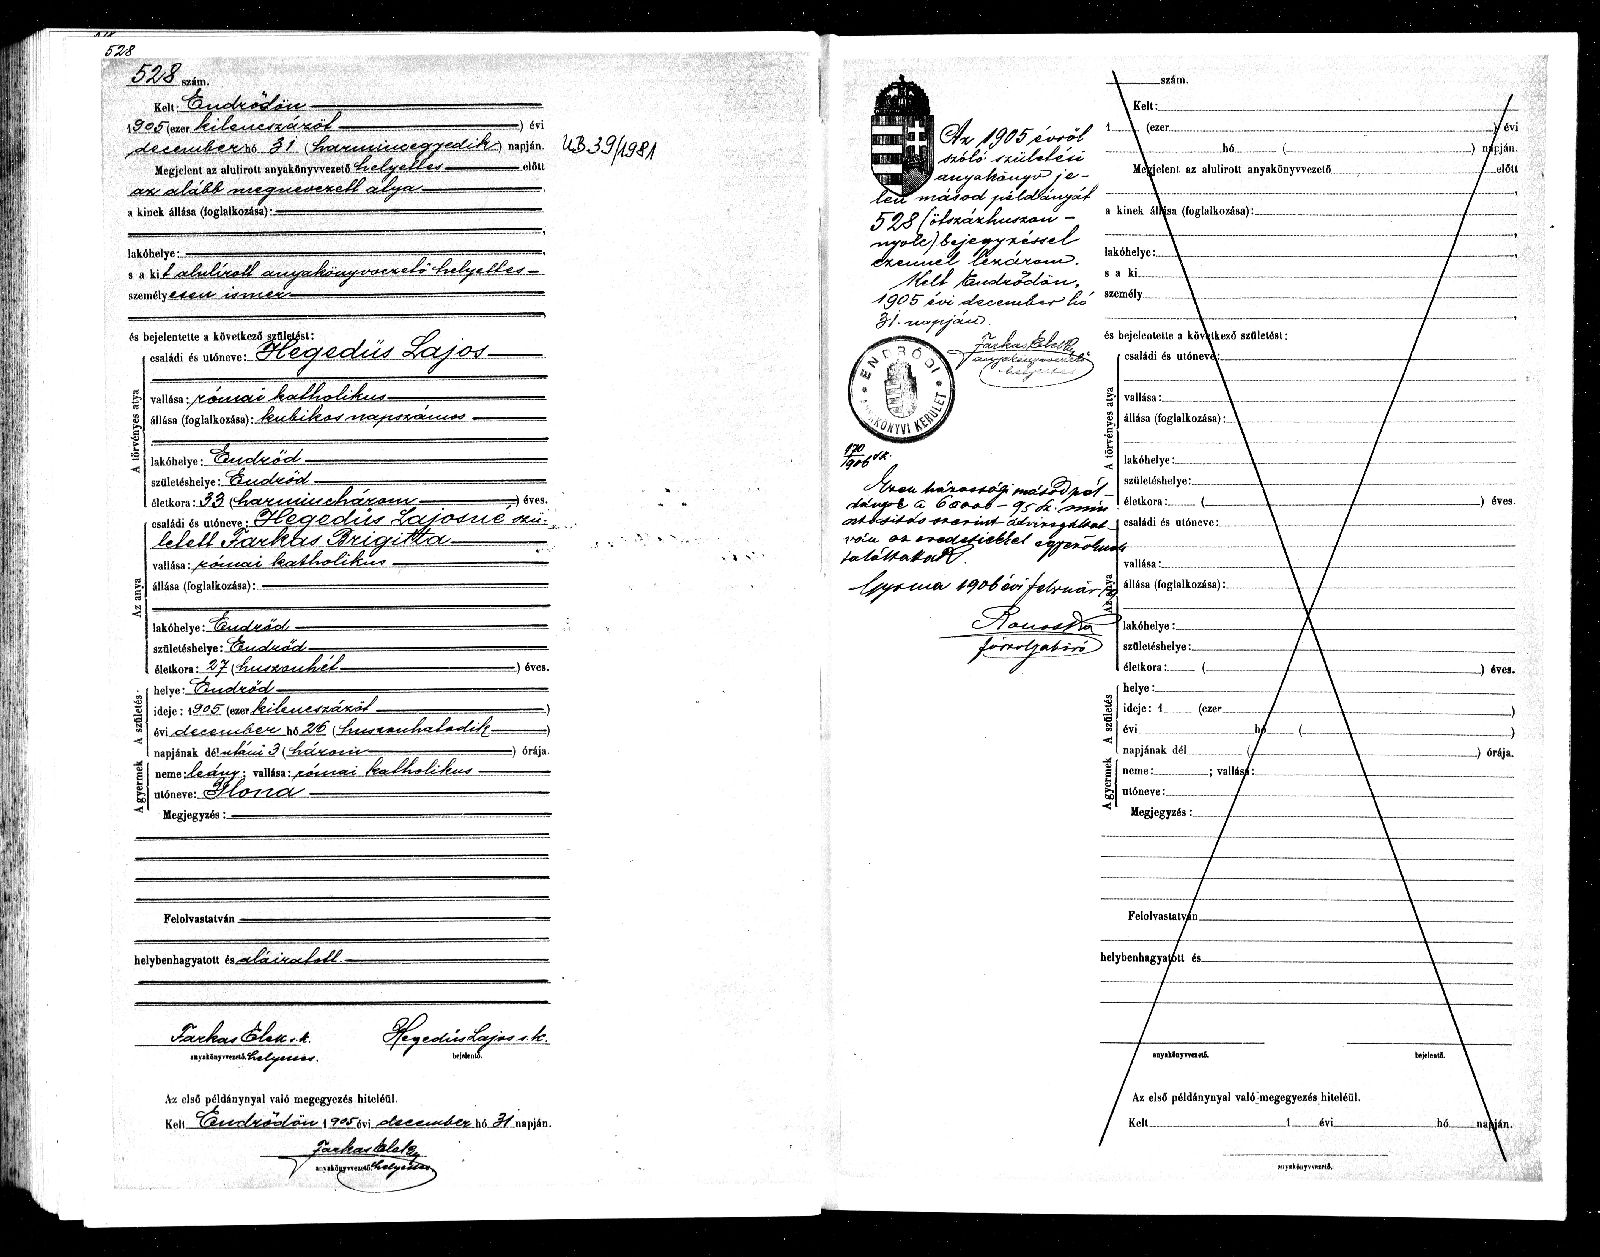 528
528 szám.
Kelt: Endrődön
1905 (ezer kilencszázöt) évi
december hó 31 (harmincegyedik) napján.
Megjelent az alulirott anyakönyvvezető helyettes előtt
az alább megnevezett atya
a kinek állása (foglalkozása):
lakóhelye:
s a kit alulírott anyakönyvvezető helyettes
személyesen ismer
és bejelentette a következő születést:
A törvényes atya
családi és utóneve: Hegedüs Lajos
vallása: római katholikus
állása (foglalkozása): kubikos napszámos
lakóhelye: Endrőd
születéshelye: Endrőd
életkora: 33 (harminchárom) éves.
Az anya
családi és utóneve: Hegedüs Lajosné szü-
letett Farkas Brigitta
vallása: római katholikus
állása (foglalkozása):
lakóhelye: Endrőd
születéshelye: Endrőd
életkora: 27 (huszonhét) éves.
A születés
helye: Endrőd
ideje: 1905 (ezer kilencszázöt)
évi december hó 26 (huszonhatodik)
napjának dél utáni 3 (három) órája.
A gyermek
neme: leány; vallása: római katholikus
utóneve: Ilona
Megjegyzés:
Felolvastatván
helybenhagyatott és aláiratott.
Farkas Elek s.k. Hegedüs Lajos s.k.
anyakönyvvezető helyettes. bejelentő.
Az első példánynyal való megegyezés hiteléül.
Kelt Endrődön 1905 évi december hó 31 napján.
Farkas Elek
anyakönyvvezető helyettes
UB 39/1981
Az 1905 évről
szóló születési
anyakönyv je-
len másod példányát
528 (ötszázhuszon-
nyolc) bejegyzéssel
ezennel lezárom.
Kelt Endrődön,
1905 évi december hó
31. napján.
Farkas Elek
anyakönyvvezető
helyettes
ENDRŐDI
ANYAKÖNYVI KERÜLET
170
1906 sz.
Ezen házassági másod pél-
dányt a 60000-95 sz.
szerint átvizsgálat-
ván az eredetiekkel egyezőnek
találtatott.
Gyoma 1906 évi február
főszolgabiró
szám.
Kelt:
1 (ezer ) évi
hó ( ) napján.
Megjelent az alulirott anyakönyvvezető előtt
a kinek állása (foglalkozása):
lakóhelye:
s a ki
személy
és bejelentette a következő születést:
A törvényes atya
családi és utóneve:
vallása:
állása (foglalkozása):
lakóhelye:
születéshelye:
életkora: ( ) éves.
Az anya
családi és utóneve:
vallása:
állása (foglalkozása):
lakóhelye:
születéshelye:
életkora: ( ) éves.
A születés
helye:
ideje: 1 (ezer )
évi hó ( )
napjának dél ( ) órája.
A gyermek
neme: ; vallása:
utóneve:
Megjegyzés:
Felolvastatván
helybenhagyatott és
anyakönyvvezető. bejelentő.
Az első példánynyal való megegyezés hiteléül.
Kelt 1 évi hó napján.
anyakönyvvezető.